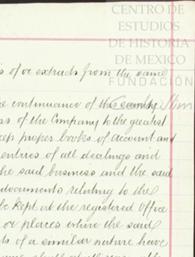 CENTRO DE
ESTUDIOS
DE HISTORIA
DE MEXICO
FUNDACIÓN
s of or extracts from the same
e continuance of the
ss of the Company to the greatest
eep proper books of account and
entries of all dealings and
he said business and the said
documents relating to the
Kept at the registered Office
or places where the said
ts of a similar nature have